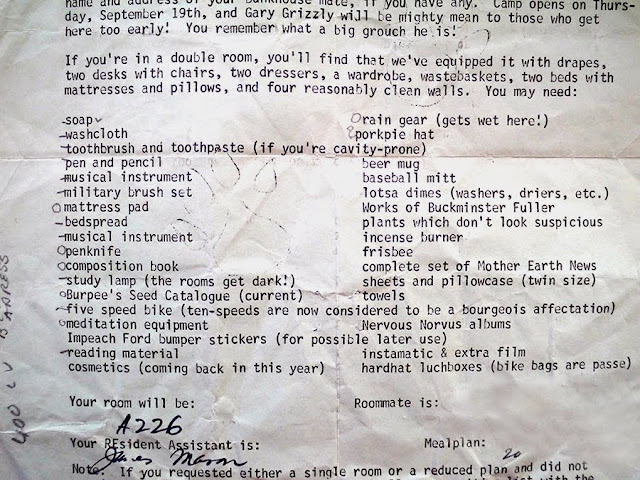 name and address of your bunkhouse mate, if you have any. Camp opens on Thurs-
day, September 19th, and Gary Grizzly will be mighty mean to those who get
here too early! You remember what a big grouch he is!
If you're in a double room, you'll find that we've equipped it with drapes,
two desks with chairs, two dressers, a wardrobe, wastebaskets, two beds with
mattresses and pillows, and four reasonably clean walls. You may need:
soap
washcloth
toothbrush and toothpaste (if you're cavity-prone)
pen and pencil
musical instrument
military brush set
mattress pad
bedspread
musical instrument
openknife
composition book
study lamp (the rooms get dark!)
Burpee's Seed Catalogue (current)
five speed bike (ten-speeds are now considered to be a bourgeois affectation)
meditation equipment
Impeach Ford bumper stickers (for possible later use)
reading material
cosmetics (coming back in this year)
rain gear (gets wet here!)
porkpie hat
beer mug
baseball mitt
lotsa dimes (washers, driers, etc.)
Works of Buckminster Fuller
plants which don't look suspicious
incense burner
frisbee
complete set of Mother Earth News
sheets and pillowcase (twin size)
towels
Nervous Norvus albums
instamatic & extra film
hardhat luchboxes (bike bags are passe)
Your room will be:
Roommate is:
A226
Your REsident Assistant is:
Mealplan:
James Mason
20
Note: If you requested either a single room or a reduced plan and did not
list with the
400